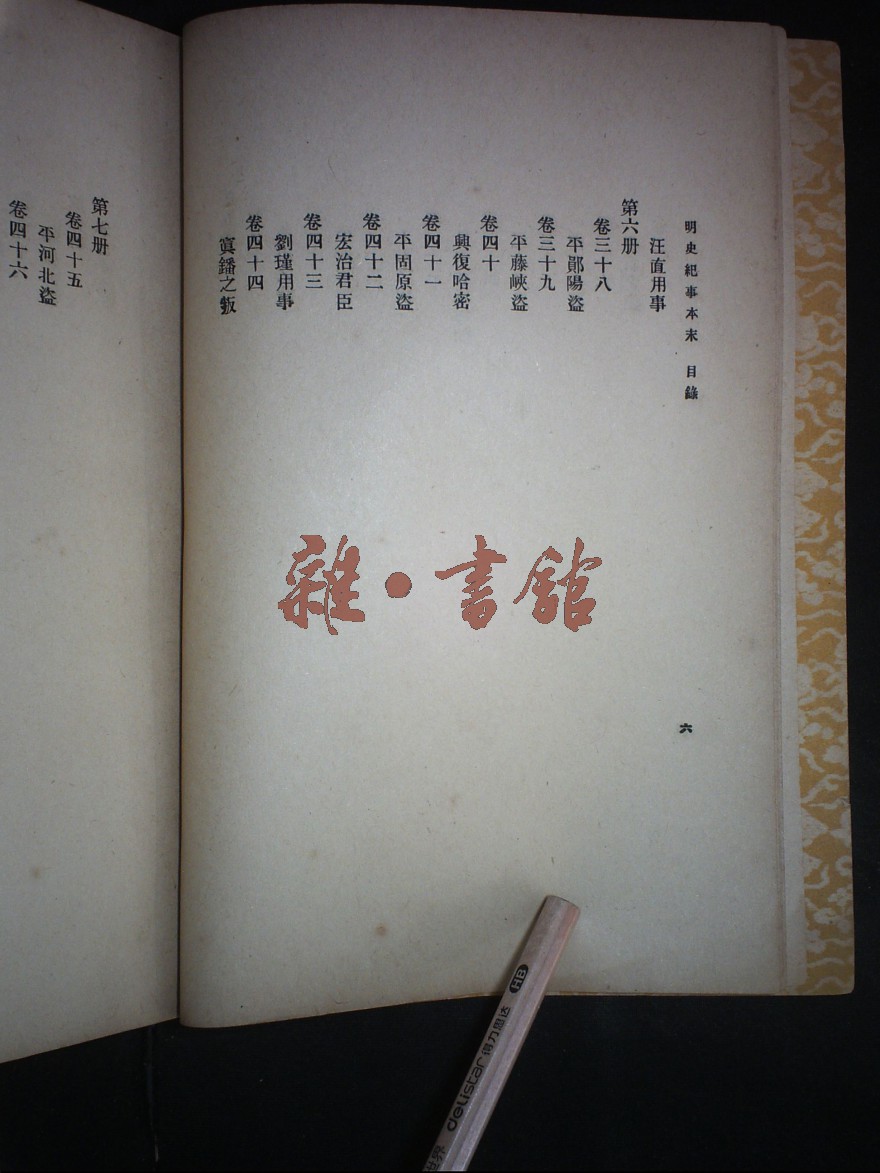 明史紀事本末 目錄
六
汪直用事
第六册
卷三十八
平鄖陽盜
卷三十九
平藤峽盜
卷四十
興復哈密
卷四十一
平固原盜
卷四十二
宏治君臣
卷四十三
劉瑾用事
卷四十四
寘鐇之叛
第七册
卷四十五
平河北盜
卷四十六
雜·書館
HB
得力思达
delistar
世界